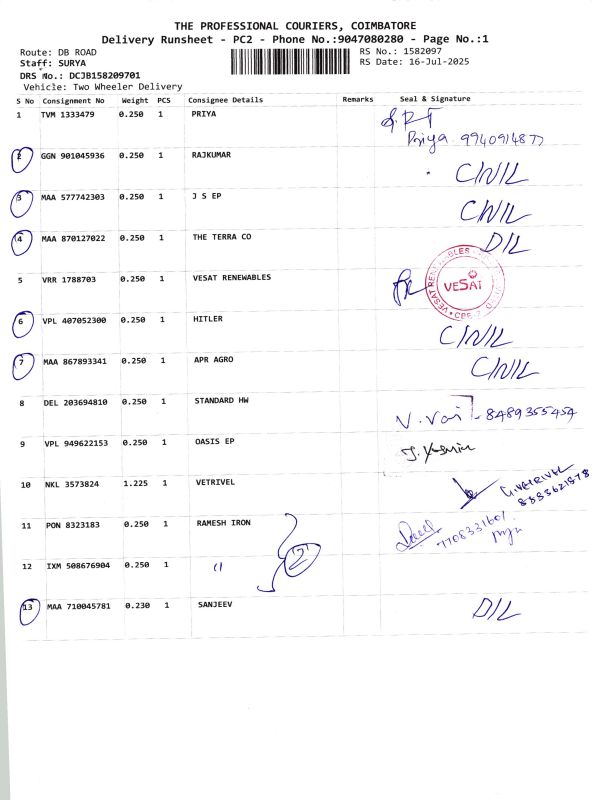 THE PROFESSIONAL COURIERS, COIMBATORE
Delivery Runsheet - PC2 - Phone No.:9047080280 - Page No.:1
Route: DB ROAD RS No.: 1582097
Staff: SURYA RS Date: 16-Jul-2025
DRS No.: DCJB158209701
Vehicle: Two Wheeler Delivery
S No Consignment No Weight PCS Consignee Details Remarks Seal & Signature
1 TVM 1333479 0.250 1 PRIYA
Priya 9940914877
2 GGN 901045936 0.250 1 RAJKUMAR C/N/L
3 MAA 577742303 0.250 1 J S EP C/N/L
4 MAA 870127022 0.250 1 THE TERRA CO D/L
5 VRR 1788703 0.250 1 VESAT RENEWABLES VESAT
6 VPL 407052300 0.250 1 HITLER C/N/L
7 MAA 867893341 0.250 1 APR AGRO C/N/L
8 DEL 203694810 0.250 1 STANDARD HW V. - 8489355454
9 VPL 949622153 0.250 1 OASIS EP
10 NKL 3573824 1.225 1 VETRIVEL G.VETRIVEL
8883621878
11 PON 8323183 0.250 1 RAMESH IRON 7708331601
12 IXM 508676904 0.250 1 " (2)
13 MAA 710045781 0.230 1 SANJEEV D/L